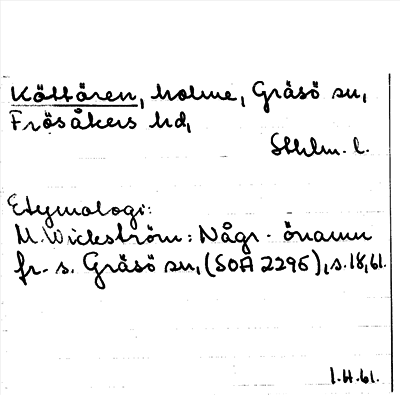 Köttören, holme, Gräsö sn,
Frösåkers hd,
Sthlm. l.
Etymologi:
M. Wickström: Någr. önamn
fr. s. Gräsö sn, (SOA 2295), s. 18, 61.
1.H.61.